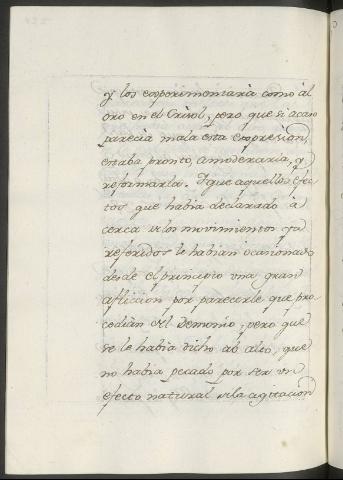 y los experimentaria como âl
oro en el Crisol, pero que si acaso
parecia mala esta expresion,
estaba pronto, a moderarla, y
reformarla. Y que aquellos efec
tos que habia declarado à
cerca de los movimientos ya
referidos le habian ocasionado
desde el principio una gran
afliccion por parecerle que pro
cedian del Demonio, pero que
se le habia dicho ab alto, que
no habia pecado por ser un
efecto natural de la agitacion